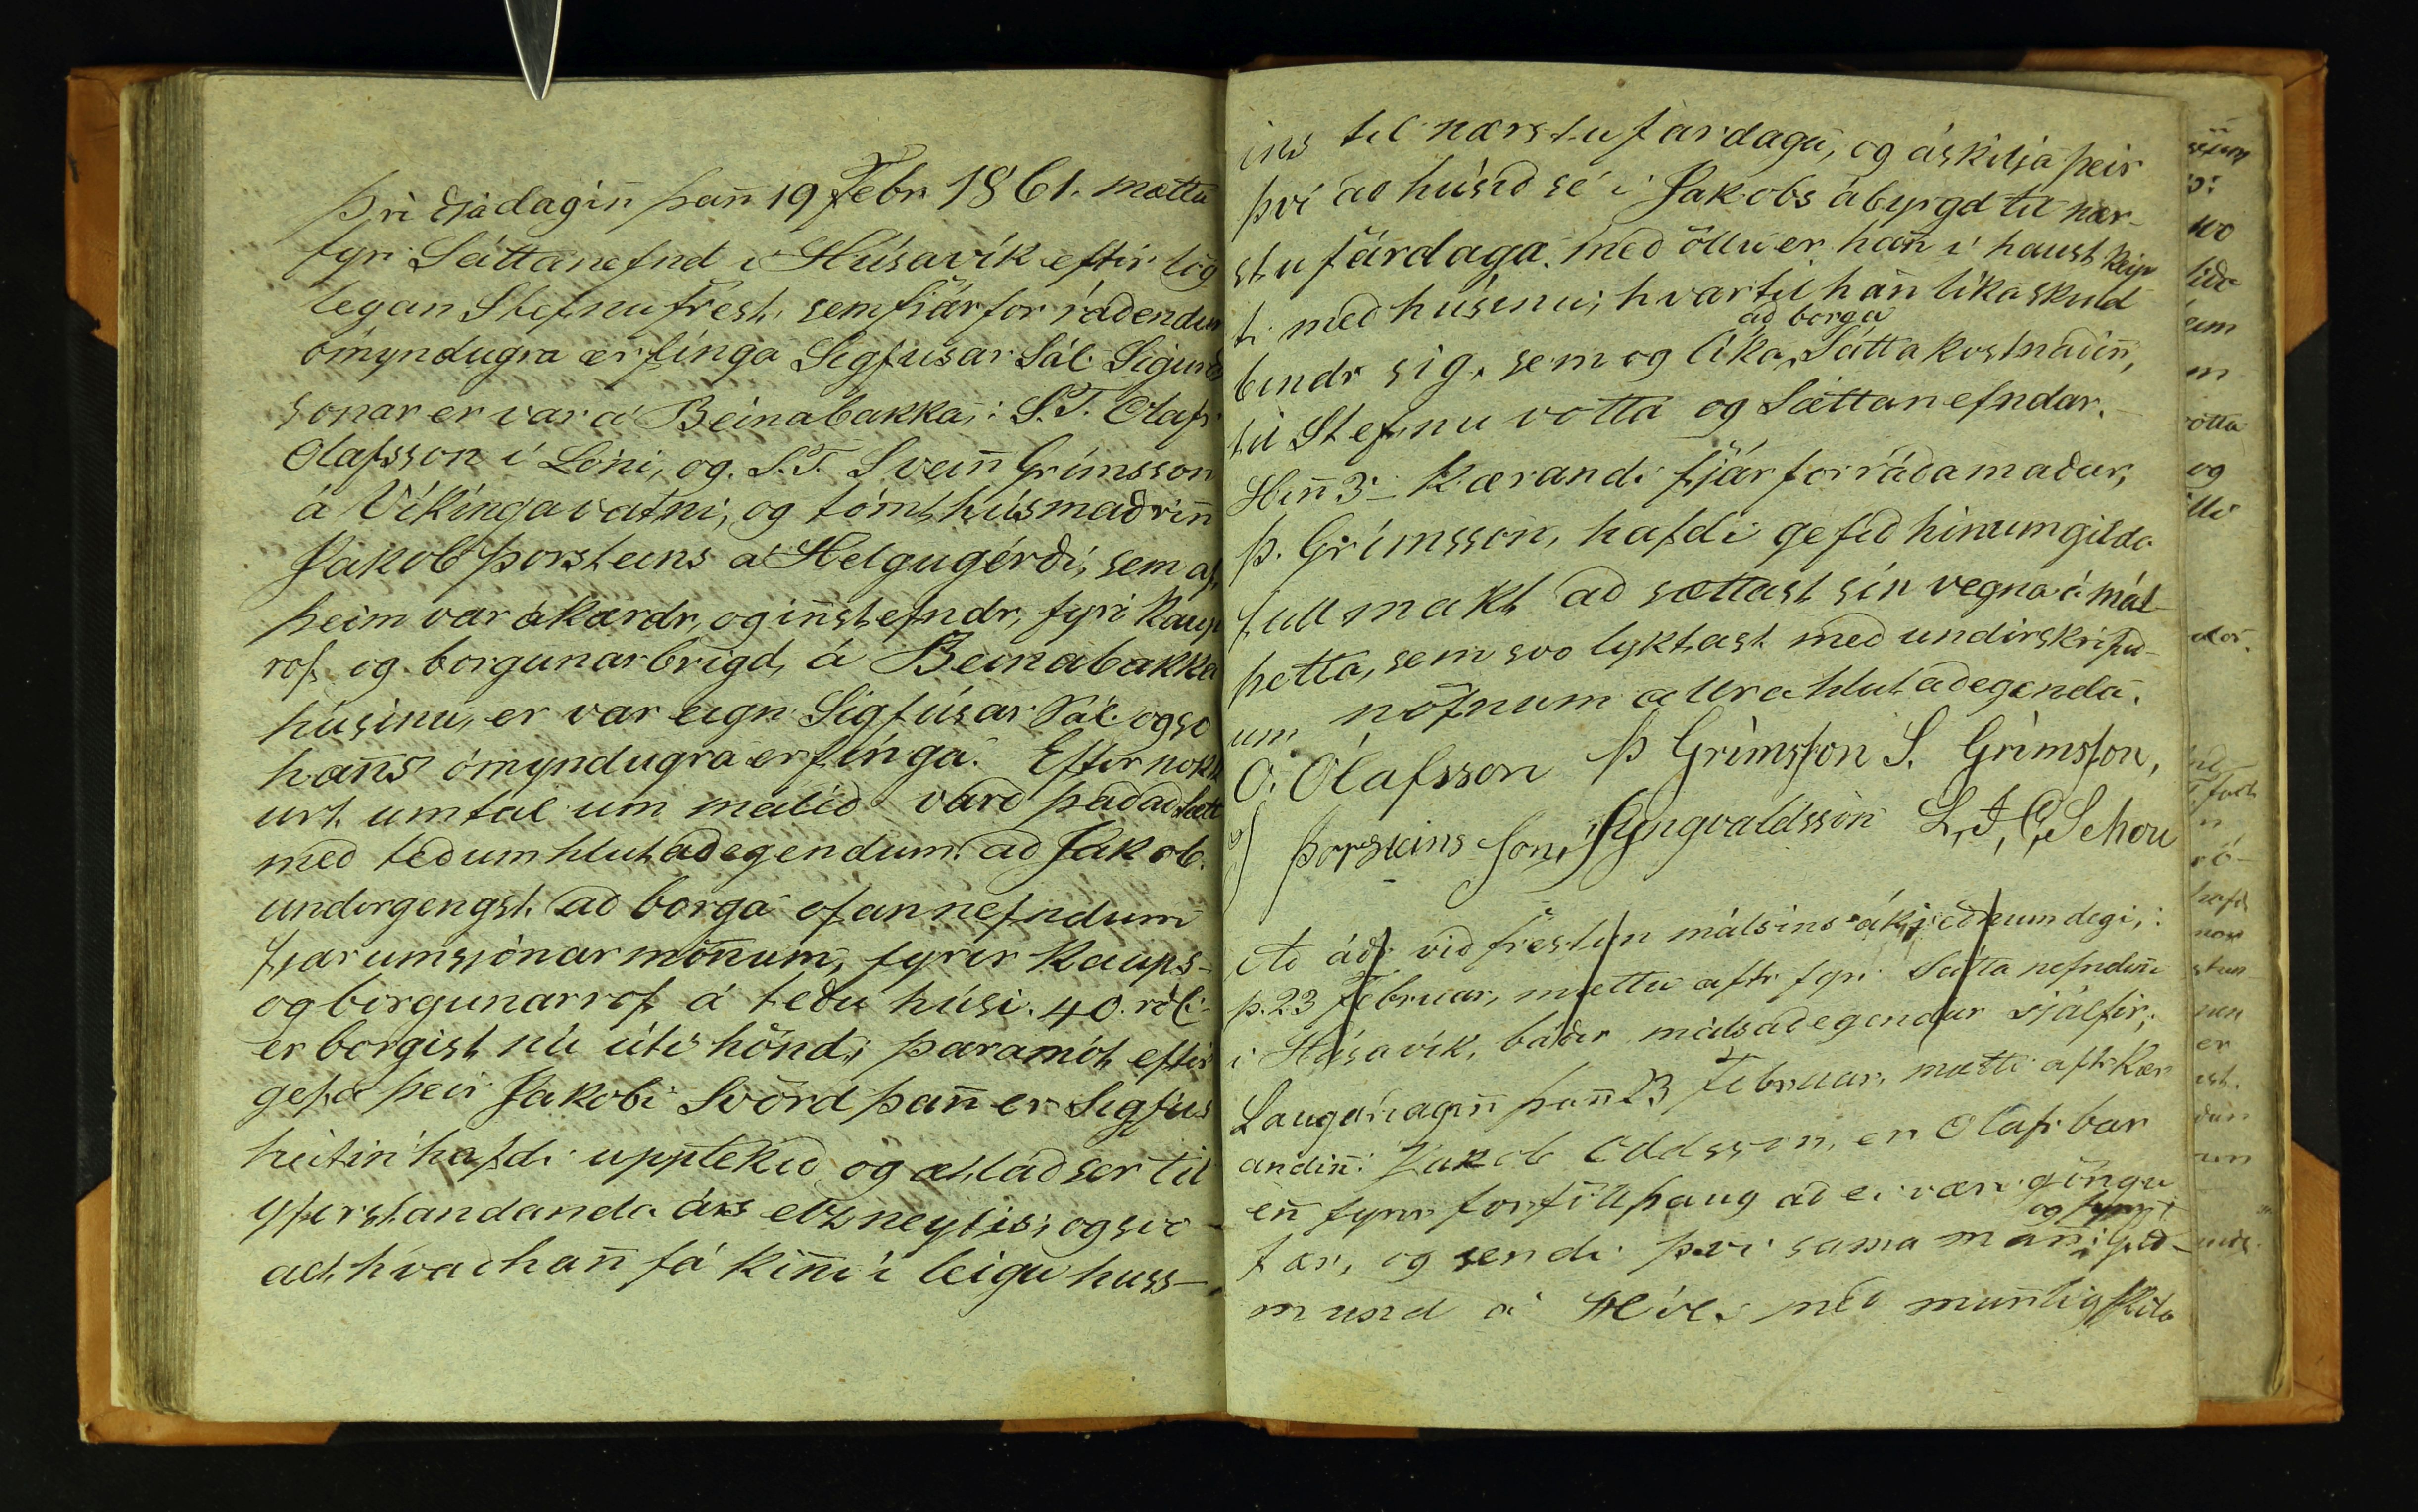 Þriðjadagin̄ þan̄ 19 Febr. 1861. mættu
fyri Sáttanefnd i Húsavík eftir lög
legan Stefnufrest, sem fjárforráðendur
ómyndugra erfínga Sigfúsar Sál. Sigurðs
sonar er var á Beinabakka,: S.T. Olafr
Olafsson í Lóni, og S.T. Svein̄ Grímsson
á Víkíngavatni, og tómthúsmaðrin̄
Jakob Þorsteins á Helgugérði, sem af
þeim var ákærdr, og in̄stefndr, fyri kaup
rof og borgunarbrigd, á Beinabakka
húsinu, er var eign Sigfúsar Sál. og so
han̄s ómyndugra erfínga. Eftir nokk
urt umtal um málid vard þad að sætt
með téðum hlutaðegendum, að Jakob
undirgengst, að borga ofannefndum
fjárumsjónarmön̄um, fyrir kaups-
og borgunarrof á téðu húsi. 40. rdl:
er borgist nú úti hönd; þaramót eftir
gefa þeir Jakobi Svörd þan̄ er Sigfús
heitin hafdi upptekid og ætlad ser til
yfirstandanda árs eldsneytis; og svo
alt hvað han̄ fá kin̄i í leigu huss-
ins til næstu fardaga, og áskilja þeir
því að húsið sé i Jakobs ábyrgd til nær-
stu fardaga. með öllu er han̄ i haust keip
ti með húsinu; hvar til han̄ líka skuld
bindr sig, sem og líka að borga Sáttakostnaðin̄,
til Stefnuvotta og Sáttanefndar.
Hin̄ 3i- kærandi fjárforráðamaður,
Þ. Grímsson, hafdi gefið hinum gilda
fullmakt að sættast sín vegna á mál
þetta, sem svo lyktast með undirskrifuð-
um nöfnum allra hlutaðegenda.
O. Olafsson Þ Grimsson S. Grimsson,
J Þorsteins son, JYngvaldsson L, J, C, Schou
Að áðr við frestun málsins ákveðnum degi,:
þ. 23 Februar, mættu aftr fyri Sáttanefndin̄i
i Húsavík, báðir málsaðegendur sjálfir;
Laugardagin̄ þan̄ 23 Februar, mætti aftr kær
andin̄: Jakob Oddsson, en Olafr bar
en̄ fyrir forföll þaug að ei væri göngu
fær, og sendi þvi sama man̄ og fyrr: Guð-
mund á Hól. með mun̄lig skila